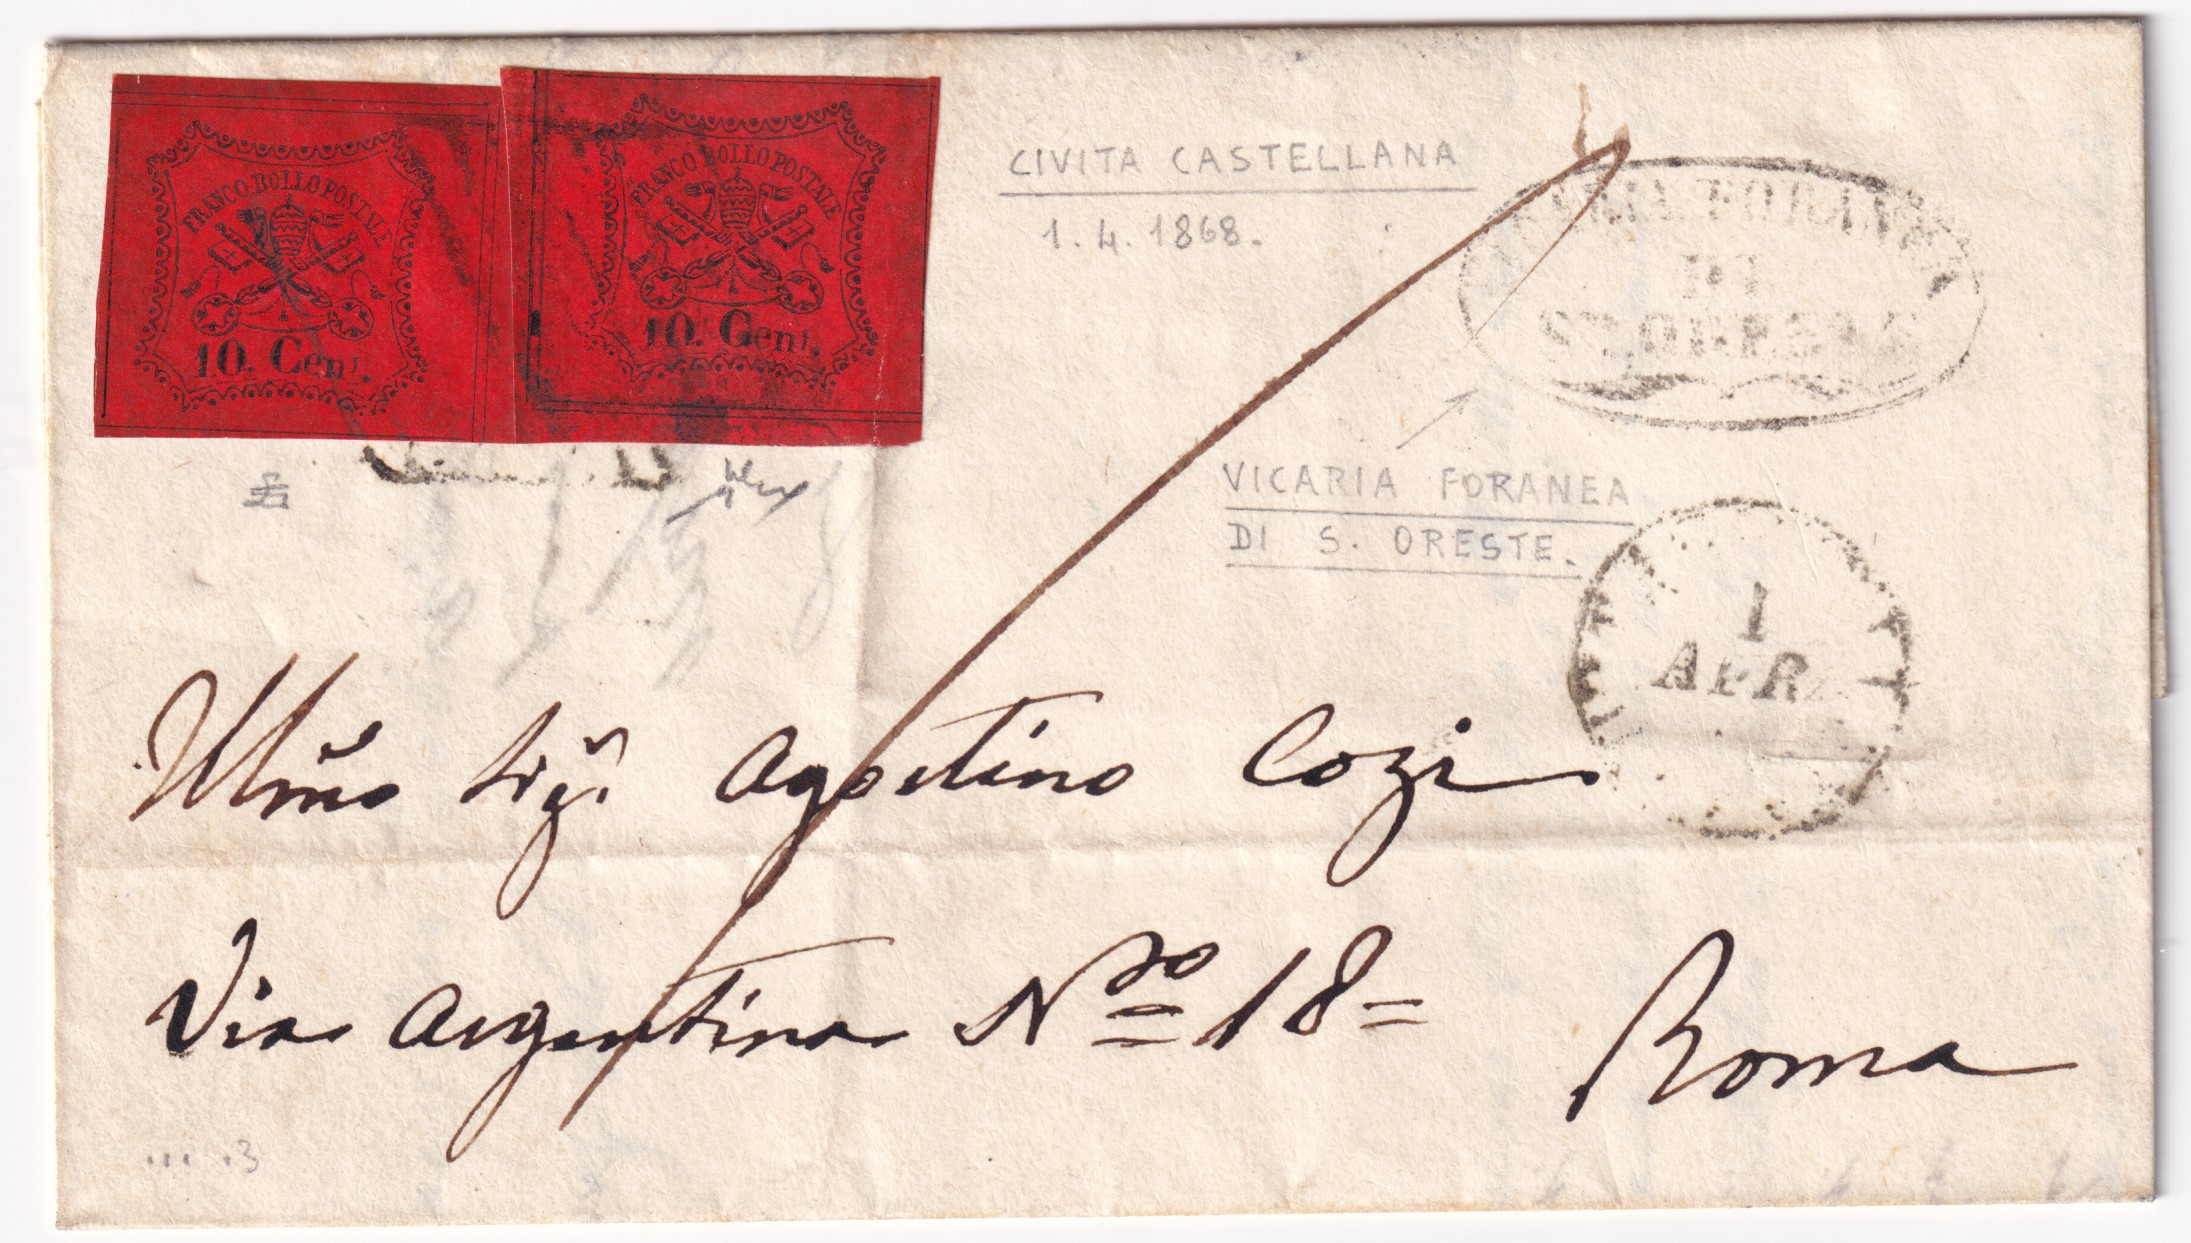 FRANCO BOLLO POSTALE
10. Cent.
FRANCO BOLLO POSTALE
10. Cent.
CIVITA CASTELLANA
1. 4. 1868.
FORANEA
DI
S. ORESTE
VICARIA FORANEA
DI S. ORESTE.
1
APR
Illmo Sigr. Agostino Cozi
Via Argentina No 18=
Roma